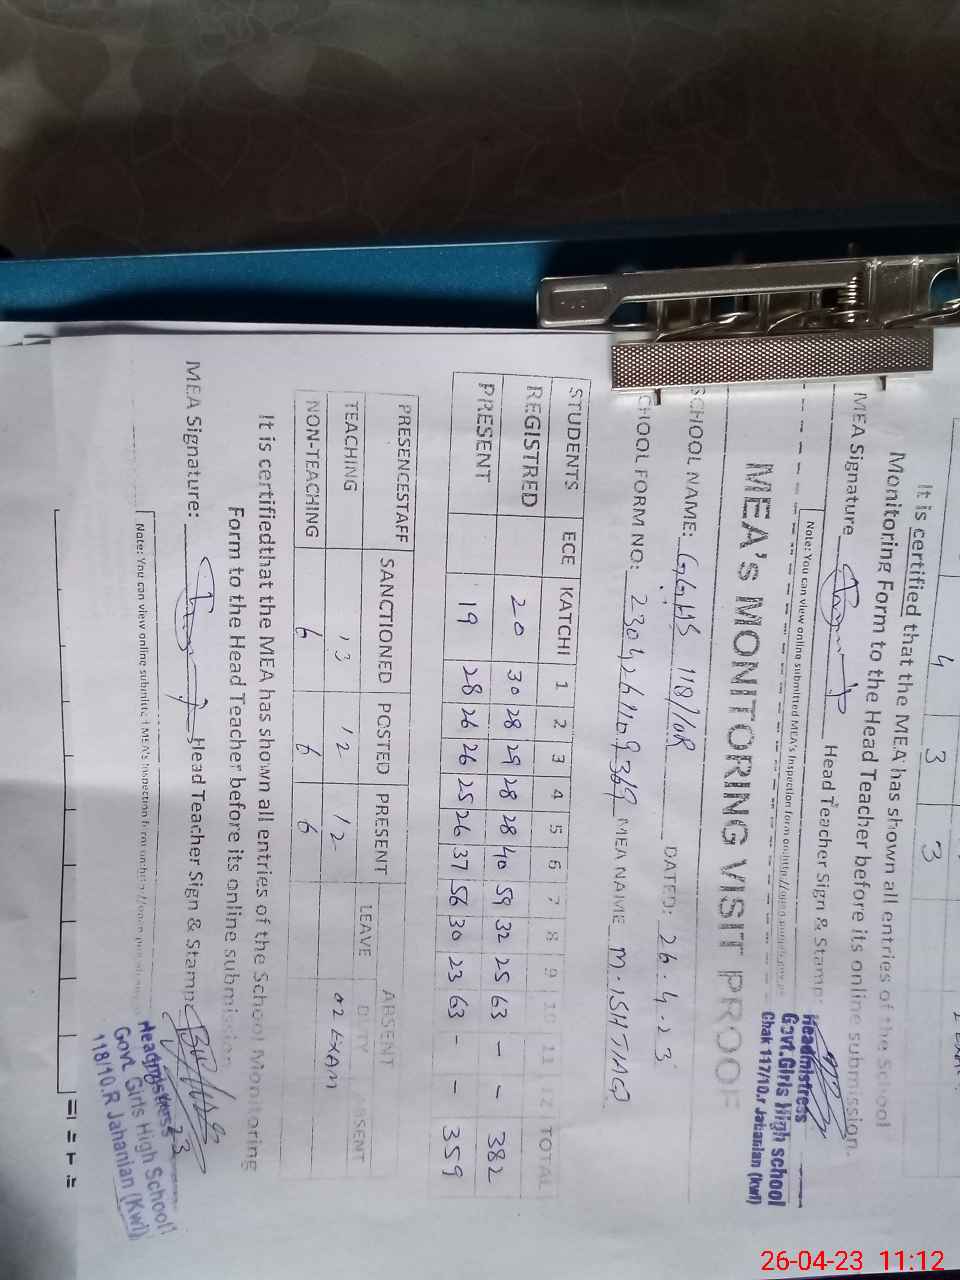 4 3 3
It is certified that the MEA has shown all entries of the School
Monitoring Form to the Head Teacher before its online submission.
MEA Signature Head Teacher Sign & Stamp:
Headmistress
Govt.Girls High school
Chak 117/10.r Jahanian (kwl)
Note: You can view online submitted MEA's Inspection form on:http://open.punjab.gov.pk
MEA's MONITORING VISIT PROOF
SCHOOL NAME: GGHS 118/10R DATED: 26.4.23
CHOOL FORM NO: MEA NAME M.ISHTIAQ
STUDENTS ECE KATCHI 1 2 3 4 5 6 7 8 9 10 11 12 TOTAL
REGISTRED 20 30 28 29 28 28 40 59 32 25 63 - - 382
PRESENT 19 28 26 26 25 26 37 56 30 23 63 - - 359
PRESENCESTAFF SANCTIONED POSTED PRESENT ABSENT
LEAVE DUTY ABSENT
TEACHING 13 12 12 02 EXAM
NON-TEACHING 6 6 6
It is certifiedthat the MEA has shown all entries of the School Monitoring
Form to the Head Teacher before its online submission
MEA Signature: Head Teacher Sign & Stamp
Headmistress
Govt. Girls High School
118/10.R Jahanian (Kwl)
Note: You can view online submitted MEA's Inspection form on:http://open.punjab.gov
26-04-23 11:12